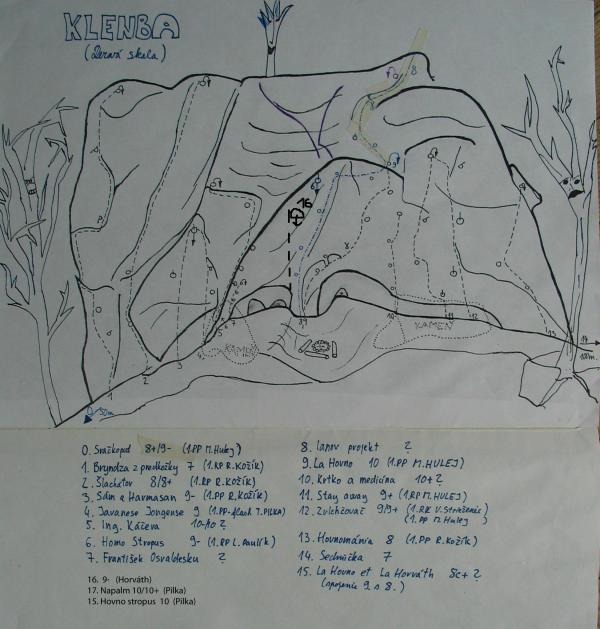 KLENBA
(Deravá skala)
8
16
KAMEŇ
KAMEŇ
14
100m.
0
50m.
0. Svažkopad 8+/9- (1.PP M.Hulej)
1. Bryndza z predložky 7 (1.RP R.KOŽÍK)
2. Šlachetov 8/8+ (1.RP R.KOŽÍK)
3. Sám e Harmasan 9- (1.PP R.KOŽÍK)
4. Javanese Jongense 9 (1.PP-flash T.PILKA)
5. Ing. Káčeva
6. Homo Stropus 9- (1.RP L.Paulík)
7. František Osvaldesku ?
8. Ianov projekt ?
9. La Hovno 10 (1.PP M.HULEJ)
10. Krtko a medicína 10+?
11. Stay away 9+ (1.RP M.HULEJ)
12. Zvlhčovač 9/9+ (1.RK V.Střeženec)
(1.PP M.Hulej)
13. Hovnománia 8 (1.PP R.Kožík)
14. Sedmička 7
15. La Hovno et La Horváth 8c+?
(spojenie 9 a 8.)
16. 9- (Horváth)
17. Napalm 10/10+ (Pilka)
15. Hovno stropus 10 (Pilka)